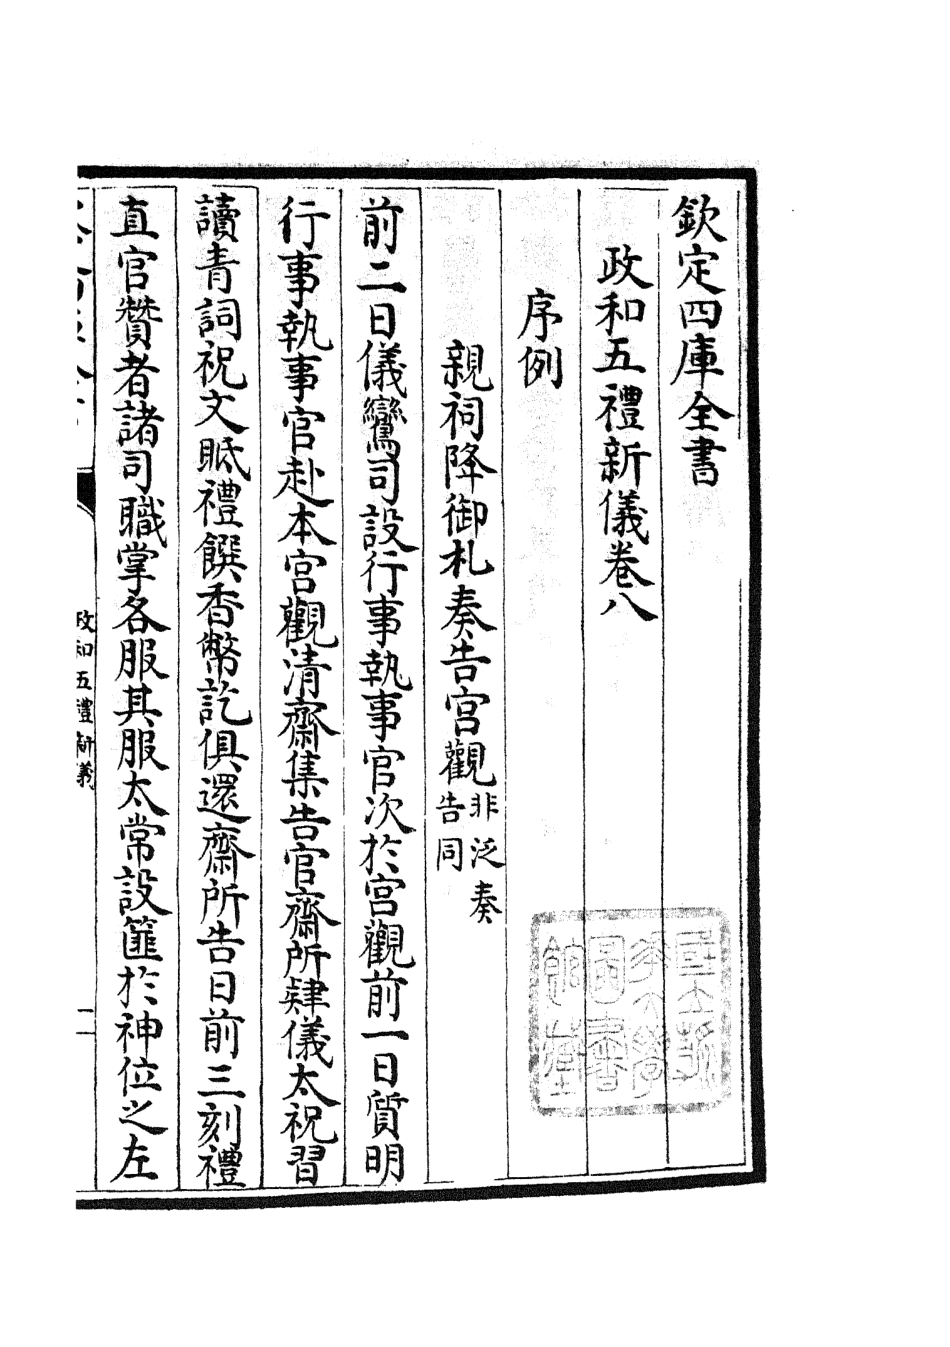 欽定四庫全書
政和五禮新儀卷八
序例
親祠降御札奏告宮觀非泛奏告同
前二日儀鸞司設行事執事官次於宮觀前一日質明
行事執事官赴本宮觀清齋集告官齋所肄儀太祝習
讀青詞祝文眡禮饌香幣訖俱還齋所告日前三刻禮
直官贊者諸司職掌各服其服太常設篚於神位之左
政和五禮新儀